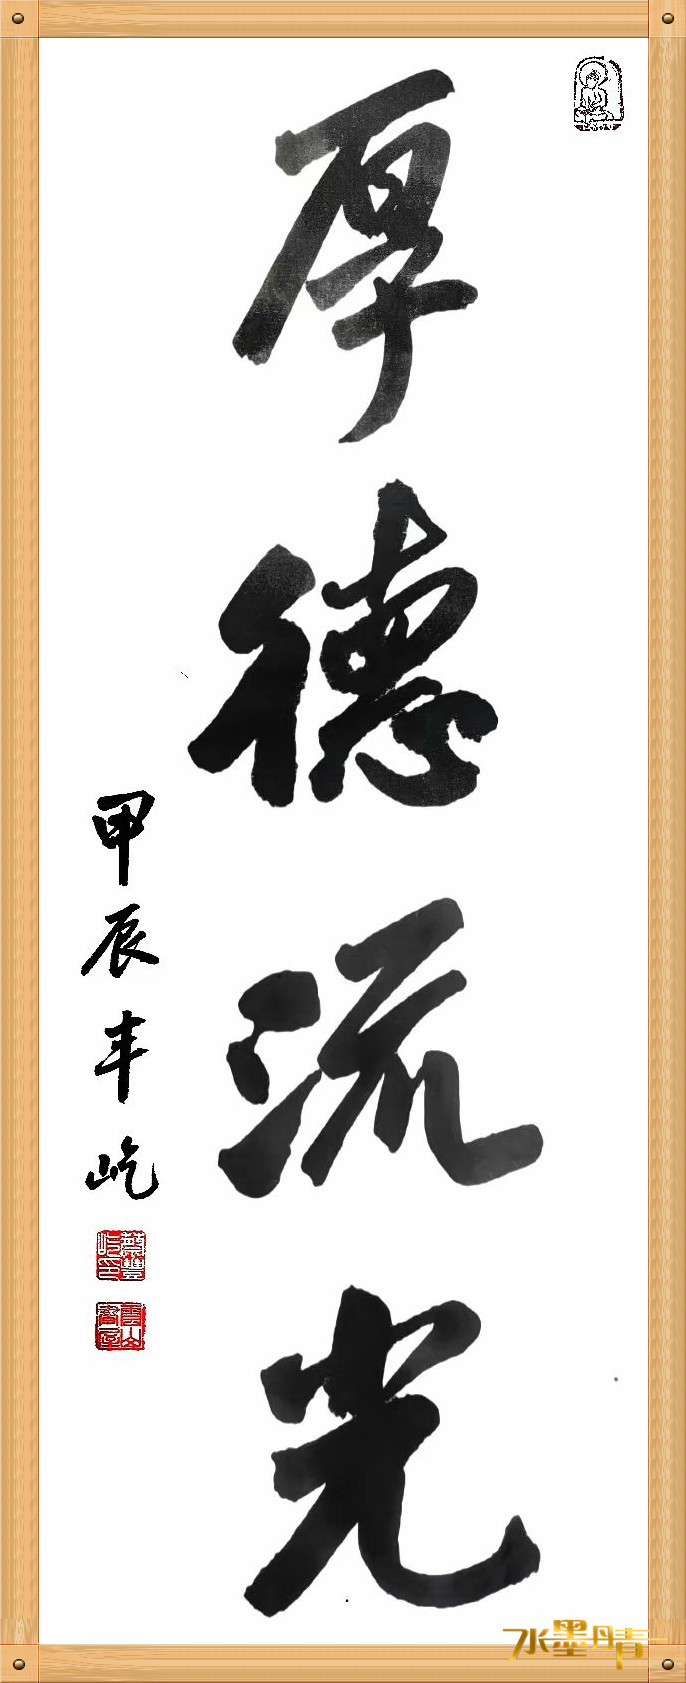 厚德流光
甲辰丰屹
水墨丹青